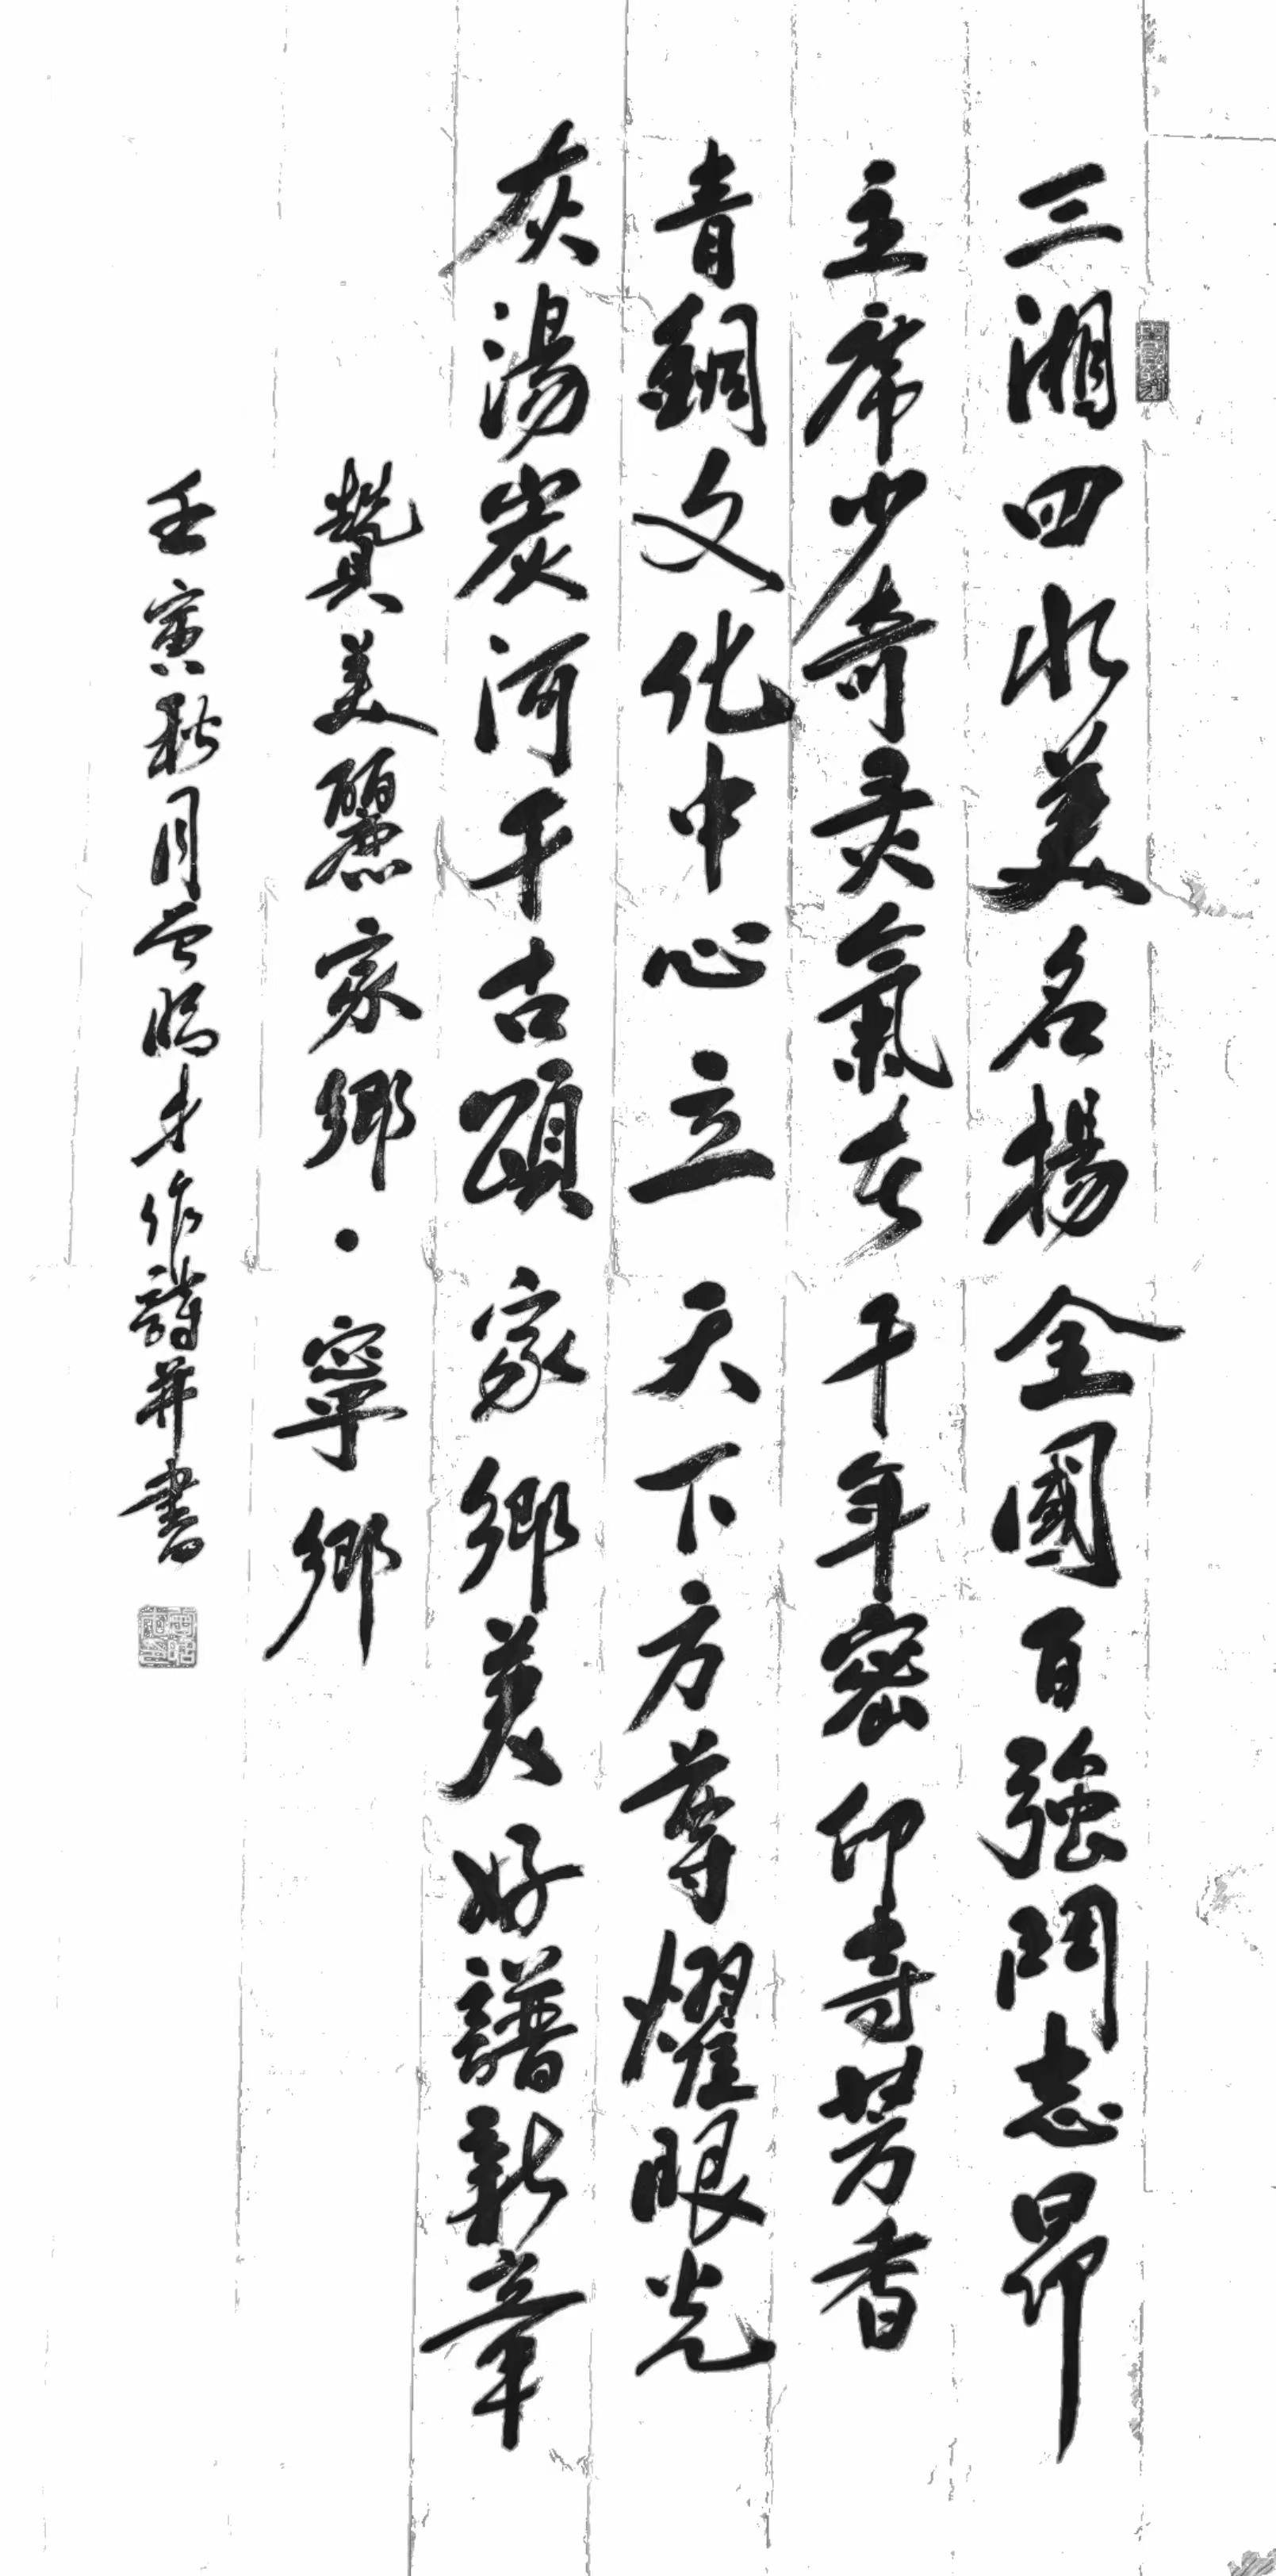 三湘四水美名揚全國百強鬥志昂
主席少奇灵氣在千年密印寺芳香
青銅文化中心立天下方尊耀眼光
灰湯炭河千古頌家鄉美好譜新章
贊美麗家鄉·寧鄉
壬寅秋月 作詩并書